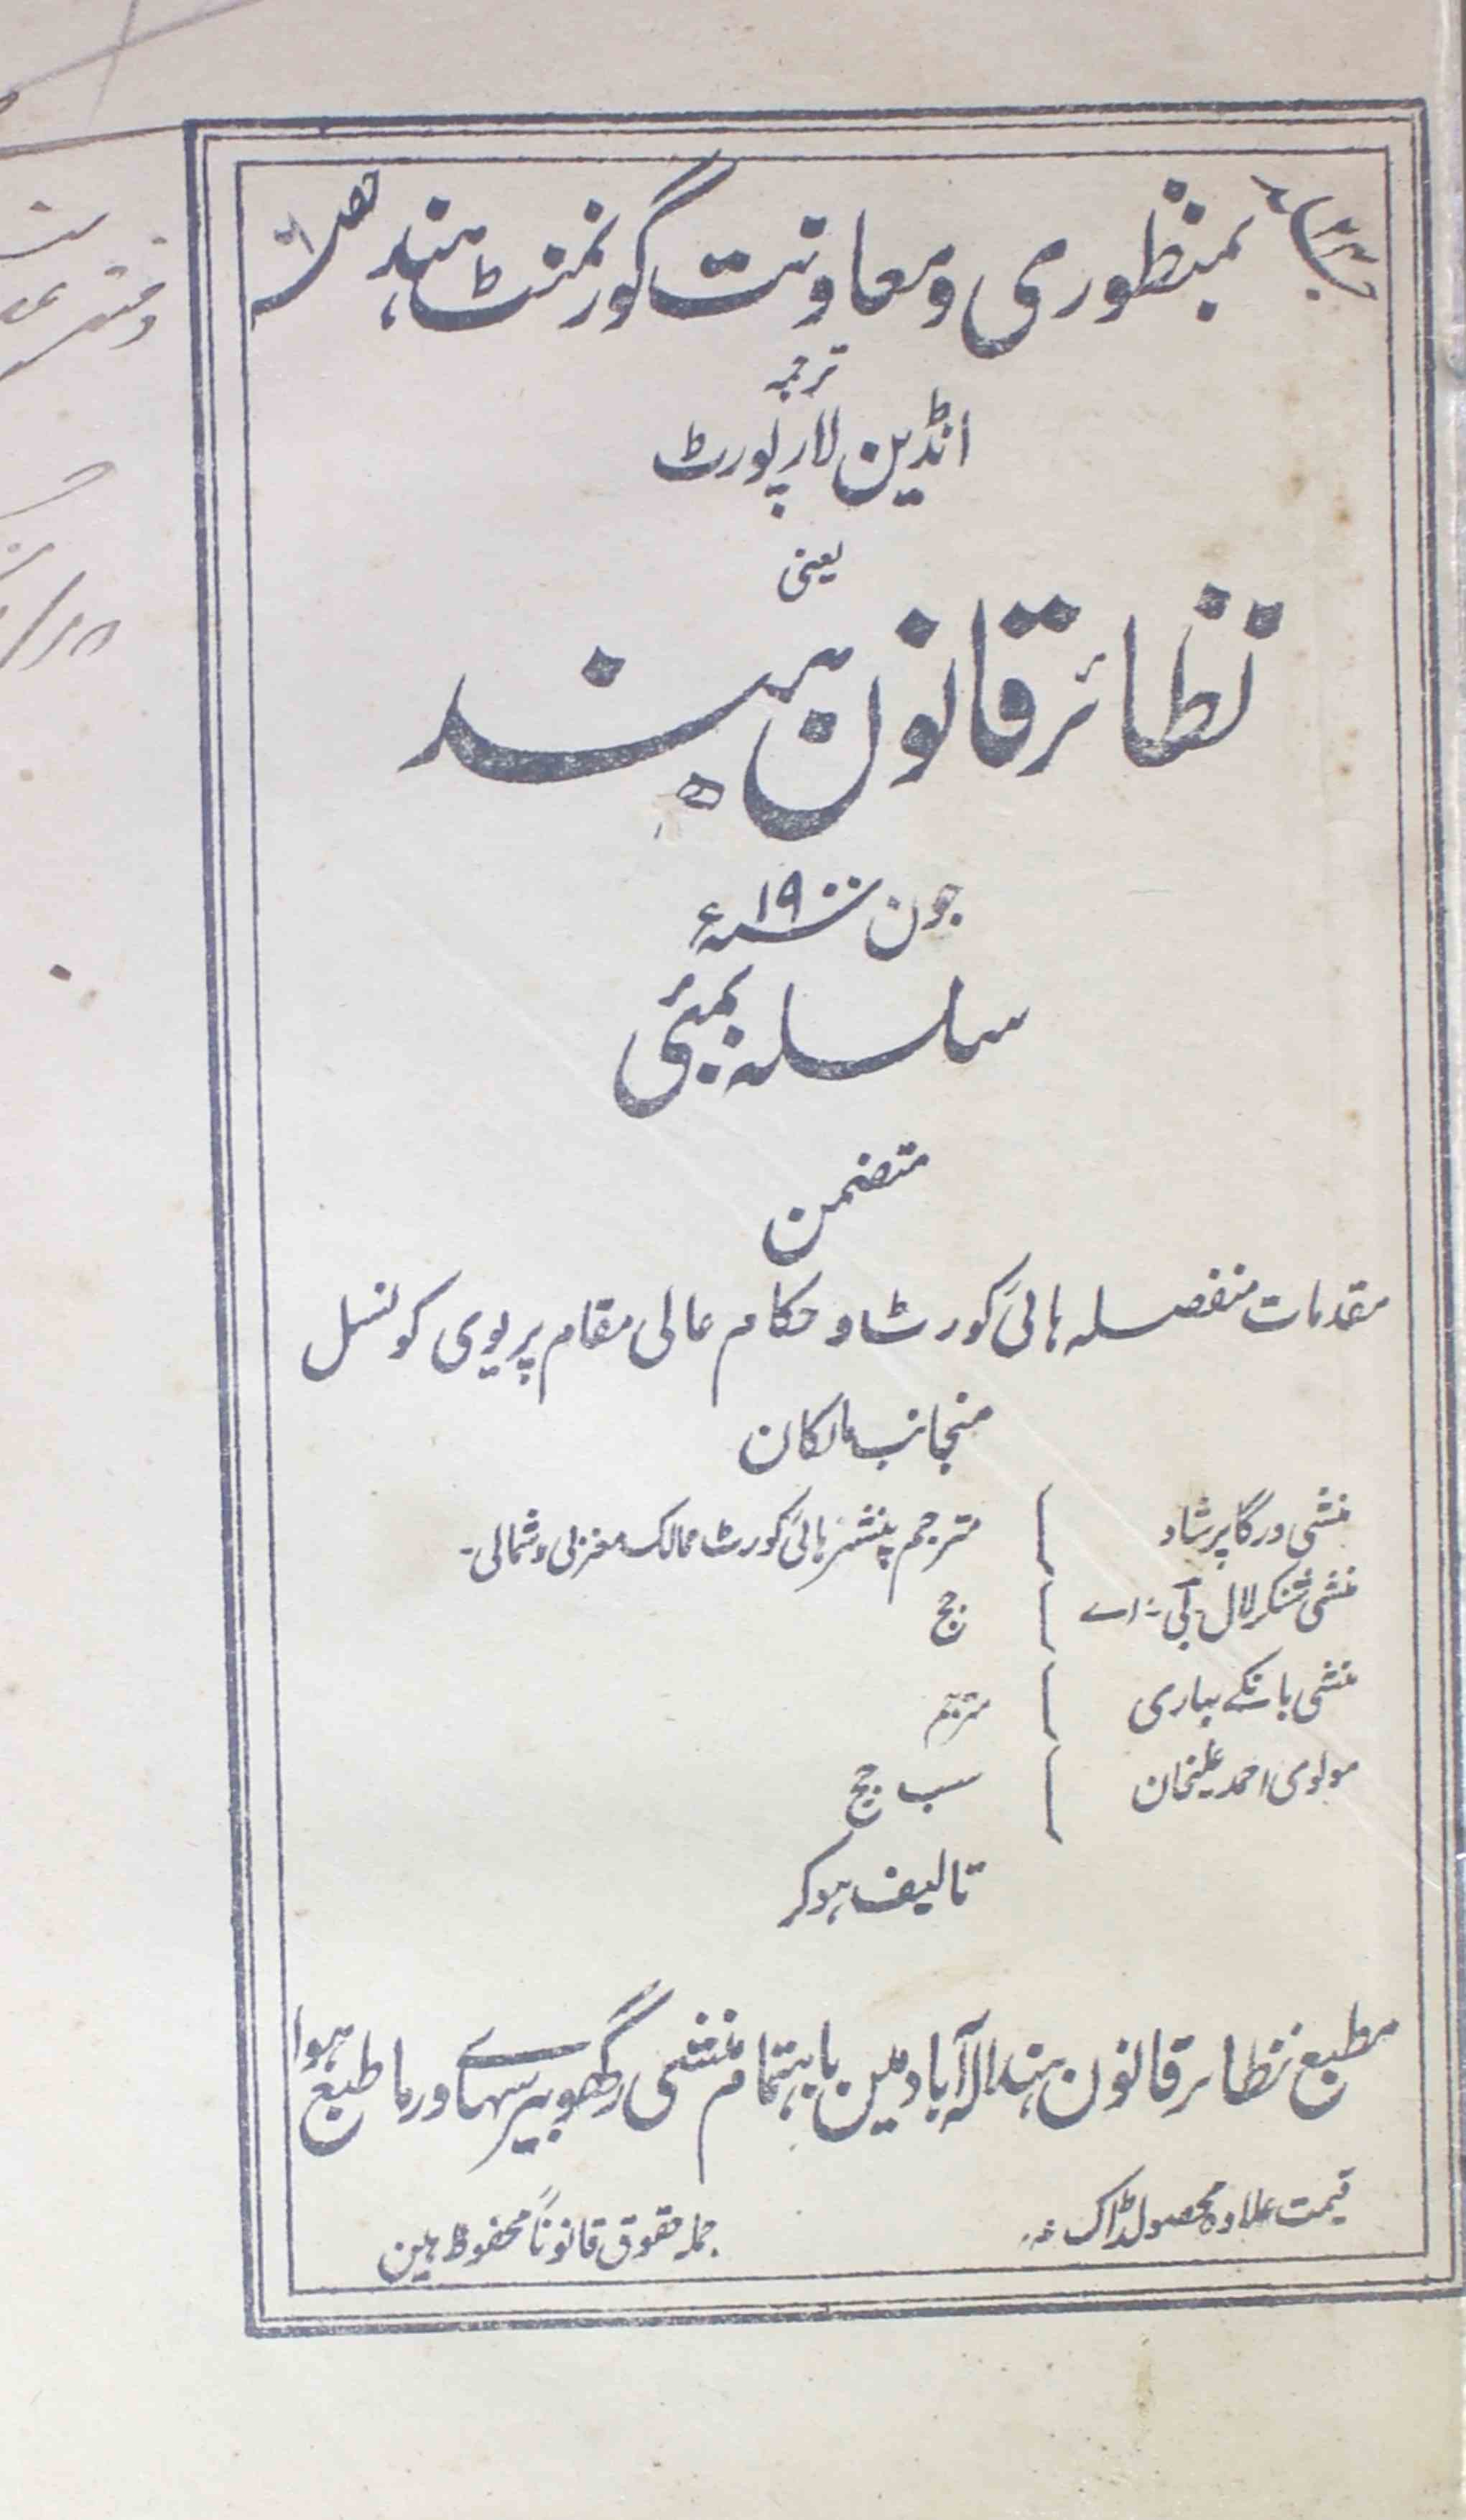 بمنظوری و معاونت گورنمنٹ ہند
ترجمہ
انڈین لا رپورٹ
یعنی
نظائر قانون ہند
جون سنہ ۱۹۰۰ء
سلسلہ بمبئی
متضمن
مقدمات منفصلہ ہائی کورٹ و حکام عالی مقام پریوی کونسل
منجانب مالکان
منشی درگا پرشاد } مترجم پنشنر ہائی کورٹ ممالک مغربی و شمالی۔
منشی شنکر لال بی۔ اے } جج
منشی بانکے بہاری } مترجم
مولوی احمد علیخان } سب جج
تالیف ہوکر
مطبع نظائر قانون ہند الہ آباد میں باہتمام منشی رگھوبیر سہاے ورما طبع ہوا
قیمت علاوہ محصولڈاک
جملہ حقوق قانوناً محفوظ ہین